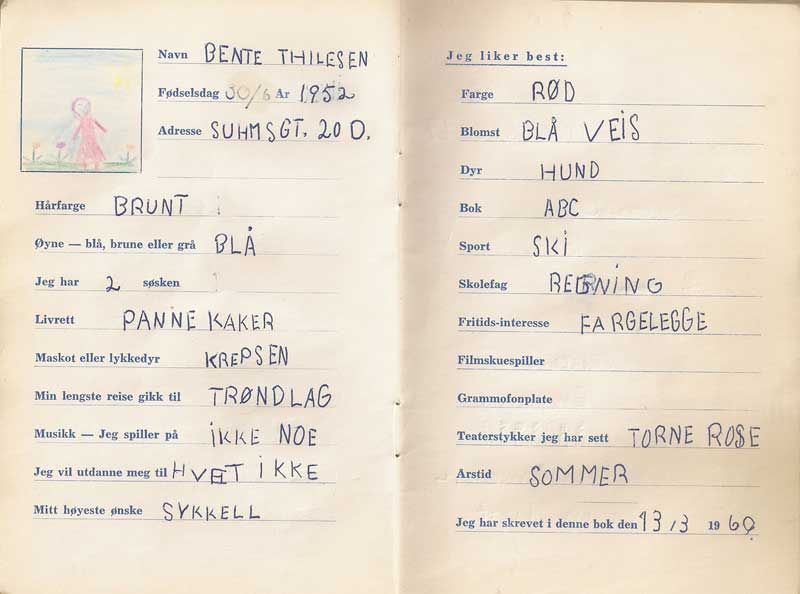 Navn BENTE THILESEN
Fødselsdag 30/6 År 1952
Adresse SUHMSGT. 20 D.
Hårfarge BRUNT
Øyne — blå, brune eller grå BLÅ
Jeg har 2 søsken
Livrett PANNE KAKER
Maskot eller lykkedyr KREPSEN
Min lengste reise gikk til TRØNDLAG
Musikk — Jeg spiller på IKKE NOE
Jeg vil utdanne meg til HVET IKKE
Mitt høyeste ønske SYKKELL
Jeg liker best:
Farge RØD
Blomst BLÅ VEIS
Dyr HUND
Bok ABC
Sport SKI
Skolefag REGNING
Fritids-interesse FARGELEGGE
Filmskuespiller
Grammofonplate
Teaterstykker jeg har sett TORNE ROSE
Årstid SOMMER
Jeg har skrevet i denne bok den 13/3 1960